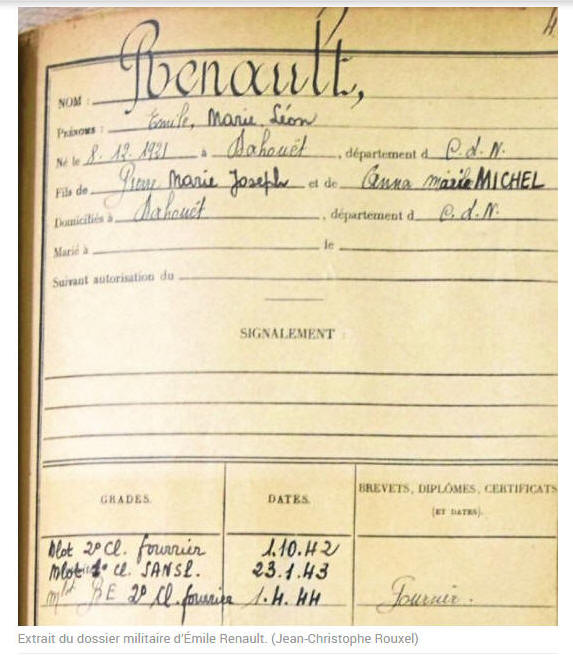 4
NOM : Renault,
PRÉNOMS : Emile, Marie Léon
Né le 8.12.1921 à Dahouët, département d C.d.N.
Fils de Pierre Marie Joseph et de Anna Marie MICHEL
Domiciliés à Dahouët, département d C.d.N.
Marié à le
Suivant autorisation du
SIGNALEMENT :
GRADES. DATES. BREVETS, DIPLÔMES, CERTIFICATS
(ET DATES).
Mlot 2e Cl. fourrier 1.10.42
Mlot 1e Cl. SANSP. 23.1.43
Mlot BE 2e Cl. fourrier 1.4.44 Fourrier.
Extrait du dossier militaire d'Émile Renault. (Jean-Christophe Rouxel)